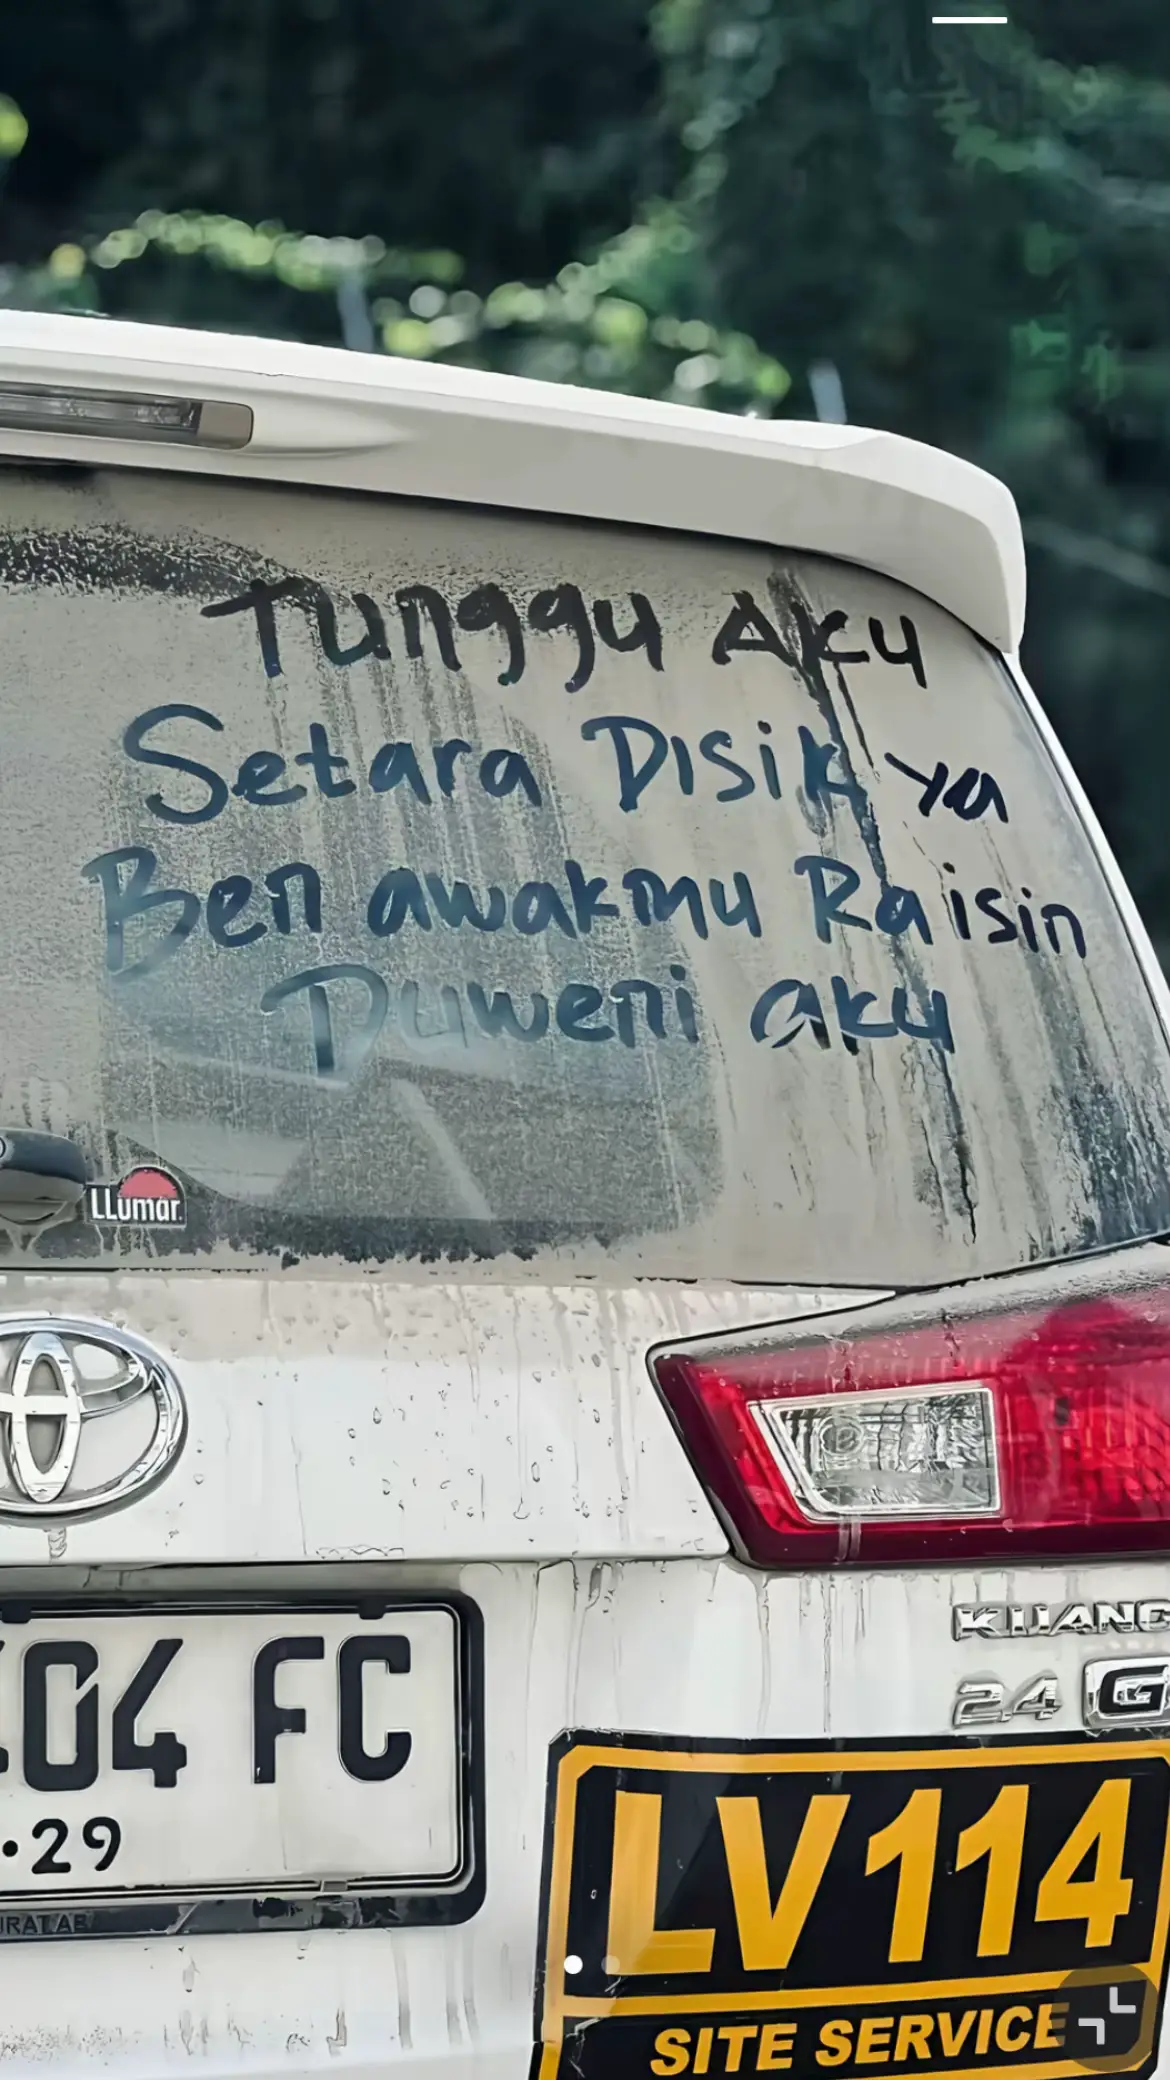 Tunggu Aku
Setara Disik ya
Ben awakmu Raisin
Duweni aku
LLumar
KIJANG
2.4 G
04 FC
·29
LV114
SITE SERVICE